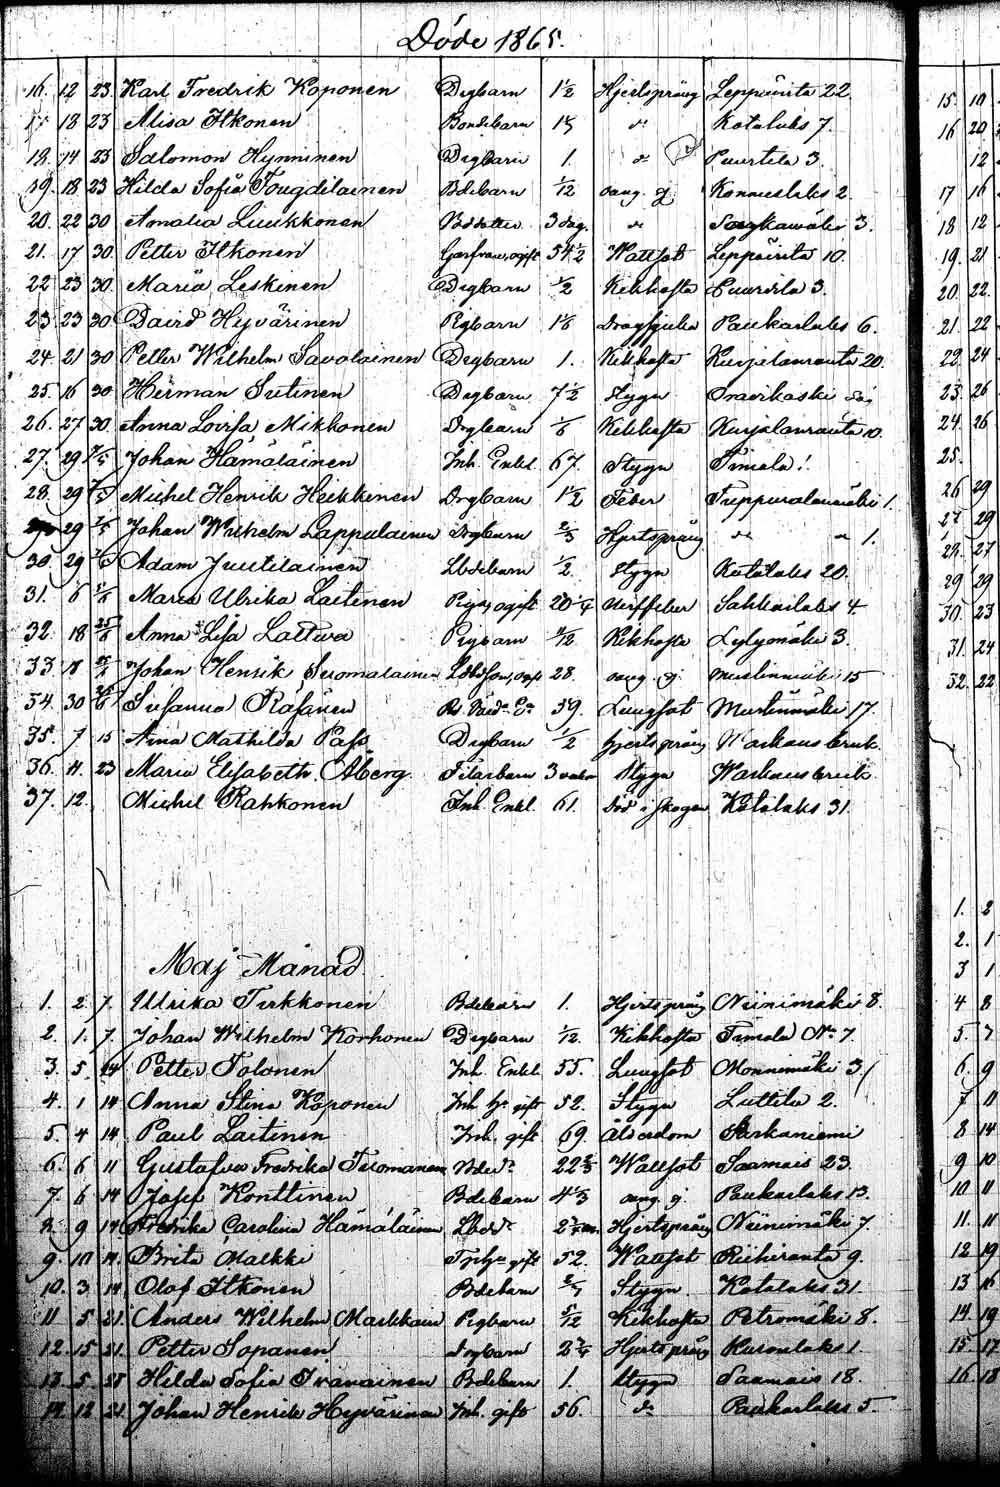 Döde 1865.
16. 12 23. Karl Fredrik Koponen Drgbarn 1½ Hjertsprång Leppäirita 22.
17. 18 23 Alisa Itkonen Bondebarn do Kotalaks 7.
18. 14 23 Salomon Hynninen Drgbarn 1. do Puurtila 3.
19. 18 23 Hilda Sofia Tougdilainen Bdebarn 1/12 oang. Konnuslaks 2.
20. 22 30 Amalia Liukkonen Bddotter 3 dag. do Sorsawäki 3.
21. 17 30. Petter Itkonen 54½ Wattsot Leppäirita 10.
22 23 30. Maria Leskinen Drgbarn ½ Kikhosta Puurtila 3.
23. 23 30 David Hyvärinen Pigbarn Dragsjuka Paukarlaks 6.
24. 21 30 Petter Wilhelm Savolainen Drgbarn 1. Kikhosta Kurjalanranta 20.
25. 16 30 Herman Sutinen Drgbarn 7½ Stygn
26. 27 30. Anna Lovisa Mikkonen Drgbarn 1/6 Kikhosta Kurjalanranta 10.
27. 29 7/5 Johan Hämäläinen Inh. Enkl. 67. Stygn Timola 1.
28. 29 7/5 Michel Henrik Heikkinen Drgbarn 1½ Feber Tuppuralanmäki 1.
29 Johan Wilhelm Lappalainen Drgbarn 2/3 Hjertsprång do do 1.
30. 29 Adam Juutilainen Lbdebarn ½ Stygn Kotalaks 20.
31. 6 Maria Ulrika Laitinen Piga, ogift 20¼ Nerffeber Sahkarlaks 4.
32. 18 Anna Lisa Laitwa Pigbarn Kikhosta Lylymäki 3.
33 18 Johan Henrik Suomalainen 28. oang. Mustinmäki 15
34. 30 Susanna Räsänen 59. Lungsot Mustinmäki 17.
35. 7 15 Anna Mathilda Pass Drgbarn ½ Hjertsprång Warkaus bruk.
36. 11. 23 Maria Elisabeth Åberg Filarbarn 3 veckor Stygn Warkaus bruk
37. 12. Michel Rahkonen Inh. Enkl. 61. Död i skogen Kotalaks 31.
Maj Månad
1. 2 7. Ulrika Tirkkonen Bdebarn 1. Hjertsprång Niinimäki 8.
2. 1. 7. Johan Wilhelm Korhonen Drgbarn 1/12. Kikhosta Timola No 7.
3. 5. 14 Petter Tolonen Inh. Enkl. 55. Lungsot Monnimäki 3
4. 1 14 Anna Stina Koponen Inh. hu gift 52. Stygn Luttila 2.
5. 4 14 Paul Laitinen Inh. gift 69. Ålderdom Sarkaniemi
6. 6 11 Gustafva Fredrika Tuomanen Wattsot Saamais 23.
7. 6 14 Josef Konttinen Bdebarn 4⅓ oang. Paukarlaks 13.
8. 9 14 Fredrika Carolina Hämäläinen Hjertsprång Niinimäki 7.
9. 10 14. Brita Malkki gift 52. Wattsot Riihiranta 9.
10. 3 14 Olof Itkonen Bdebarn Stygn Kotalaks 31.
11 5 21. Anders Wilhelm Markkanen Pigbarn 5/12 Kikhosta Petromäki 8.
12. 15 21. Petter Sopanen Drgbarn 2¾ Hjertsprång Kurolaks 1.
13. 5. 28 Hilda Sofia Ikävainen Bdebarn 1. Stygn Saamais 18.
14. 12 21. Johan Henrik Hyvärinen Inh. gift 56. do Paukarlaks 5.
15. 10
16 20
12
17 16
18 12
19. 21
20. 22.
21. 22
22. 24
23. 26
24. 26
25.
26 29
27 29
28. 27
29 29
30. 23
31. 24
32. 22
1. 2
2. 1
3 1
4 8
5. 7
6. 9
7 11
8 14
9 10
10 11
11. 11
12 19
13 16
14. 19
15. 17
16 18